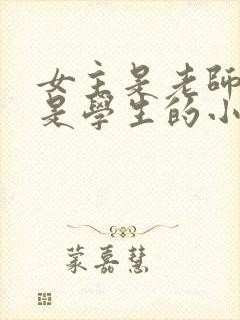 女主是老師
是學生的小
蒙嘉慧